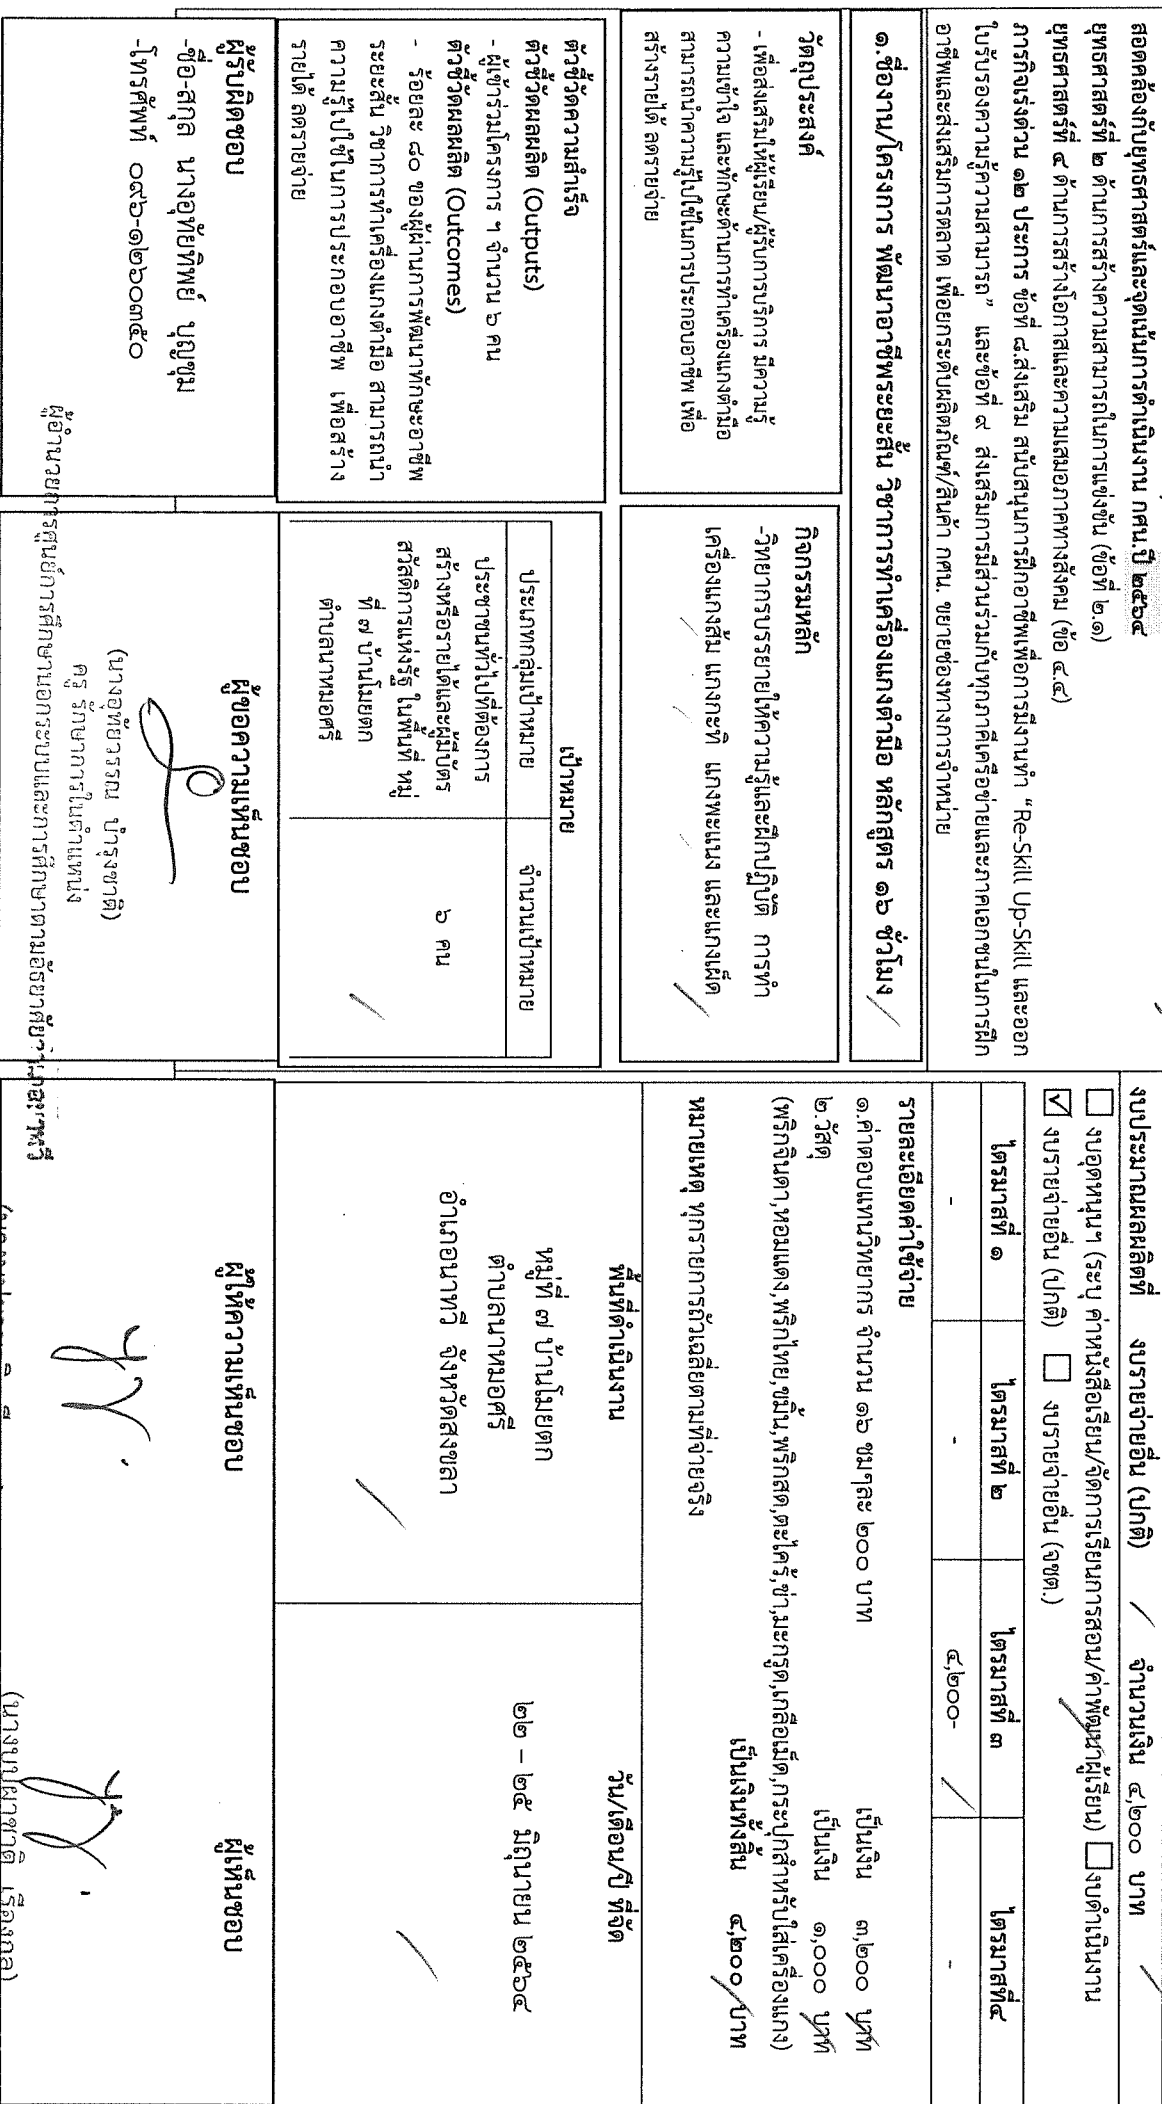 สอดคล้องกับยุทธศาสตร์และจุดเน้นการดำเนินงาน กศน.ปี ๒๕๖๔
ยุทธศาสตร์ที่ ๒ ด้านการสร้างความสามารถในการแข่งขัน (ข้อที่ ๒.๑)
ยุทธศาสตร์ที่ ๔ ด้านการสร้างโอกาสและความเสมอภาคทางสังคม (ข้อ ๔.๔)
ภารกิจเร่งด่วน ๑๒ ประการ ข้อที่ ๘.ส่งเสริม สนับสนุนการฝึกอาชีพเพื่อการมีงานทำ “Re-Skill Up-Skill และออก
ใบรับรองความรู้ความสามารถ” และข้อที่ ๙ ส่งเสริมการมีส่วนร่วมกับทุกภาคีเครือข่ายและภาคเอกชนในการฝึก
อาชีพและส่งเสริมการตลาด เพื่อยกระดับผลิตภัณฑ์/สินค้า กศน. ขยายช่องทางการจำหน่าย
๑.ชื่องาน/โครงการ พัฒนาอาชีพระยะสั้น วิชาการทำเครื่องแกงตำมือ หลักสูตร ๑๖ ชั่วโมง
วัตถุประสงค์
- เพื่อส่งเสริมให้ผู้เรียน/ผู้รับการบริการ มีความรู้
ความเข้าใจ และทักษะด้านการทำเครื่องแกงตำมือ
สามารถนำความรู้ไปใช้ในการประกอบอาชีพ เพื่อ
สร้างรายได้ ลดรายจ่าย
กิจกรรมหลัก
-วิทยากรบรรยายให้ความรู้และฝึกปฏิบัติ การทำ
เครื่องแกงส้ม แกงกะทิ แกงพะแนง และแกงเผ็ด
ตัวชี้วัดความสำเร็จ
ตัวชี้วัดผลผลิต (Outputs)
- ผู้เข้าร่วมโครงการ ฯ จำนวน ๖ คน
ตัวชี้วัดผลผลิต (Outcomes)
- ร้อยละ ๘๐ ของผู้ผ่านการพัฒนาทักษะอาชีพ
ระยะสั้น วิชาการทำเครื่องแกงตำมือ สามารถนำ
ความรู้ไปใช้ในการประกอบอาชีพ เพื่อสร้าง
รายได้ ลดรายจ่าย
เป้าหมาย
ประเภทกลุ่มเป้าหมาย จำนวนเป้าหมาย
ประชาชนทั่วไปที่ต้องการ
สร้างหรือรายได้และผู้มีบัตร
สวัสดิการแห่งรัฐ ในพื้นที่ หมู่
ที่ ๗ บ้านโมยตก
ตำบลนาหมอศรี
๖ คน
ผู้รับผิดชอบ
-ชื่อ-สกุล นางอุทัยทิพย์ บุญชุม
-โทรศัพท์ ๐๙๖-๑๒๖๐๓๕๐
ผู้ขอความเห็นชอบ
(นางอุทัยวรรณ บำรุงชาติ)
ครู รักษาการในตำแหน่ง
ผู้อำนวยการศูนย์การศึกษานอกระบบและการศึกษาตามอัธยาศัยอำเภอนาทวี
งบประมาณผลผลิตที่ งบรายจ่ายอื่น (ปกติ) จำนวนเงิน ๔,๒๐๐ บาท
☐ งบอุดหนุนฯ (ระบุ ค่าหนังสือเรียน/จัดการเรียนการสอน/ค่าพัฒนาผู้เรียน) ☐งบดำเนินงาน
☑ งบรายจ่ายอื่น (ปกติ) ☐ งบรายจ่ายอื่น (จชต.)
ไตรมาสที่ ๑ ไตรมาสที่ ๒ ไตรมาสที่ ๓ ไตรมาสที่๔
- - ๔,๒๐๐- -
รายละเอียดค่าใช้จ่าย
๑.ค่าตอบแทนวิทยากร จำนวน ๑๖ ชมๆละ ๒๐๐ บาท เป็นเงิน ๓,๒๐๐ บาท
๒.วัสดุ เป็นเงิน ๑,๐๐๐ บาท
(พริกจินดา,หอมแดง,พริกไทย,ขมิ้น,พริกสด,ตะไคร้,ข่า,มะกรูด,เกลือเม็ด,กระปุกสำหรับใส่เครื่องแกง)
เป็นเงินทั้งสิ้น ๔,๒๐๐ บาท
หมายเหตุ ทุกรายการถัวเฉลี่ยตามที่จ่ายจริง
พื้นที่ดำเนินงาน
หมู่ที่ ๗ บ้านโมยตก
ตำบลนาหมอศรี
อำเภอนาทวี จังหวัดสงขลา
วัน/เดือน/ปี ที่จัด
๒๒ – ๒๕ มิถุนายน ๒๕๖๔
ผู้ให้ความเห็นชอบ
ผู้เห็นชอบ